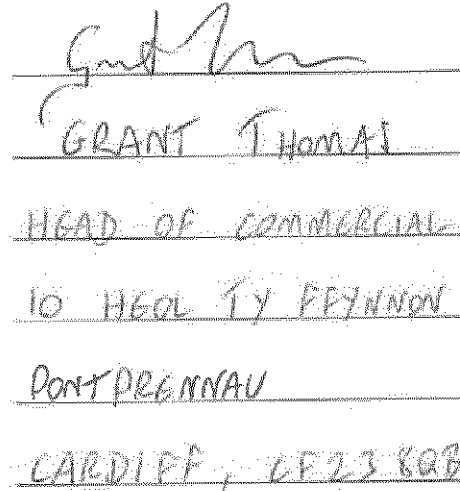 GRANT THOMAS
HEAD OF COMMERCIAL
10 HEOL TY FFYNNON
PONTPRENNAU
CARDIFF, CF23 8QB